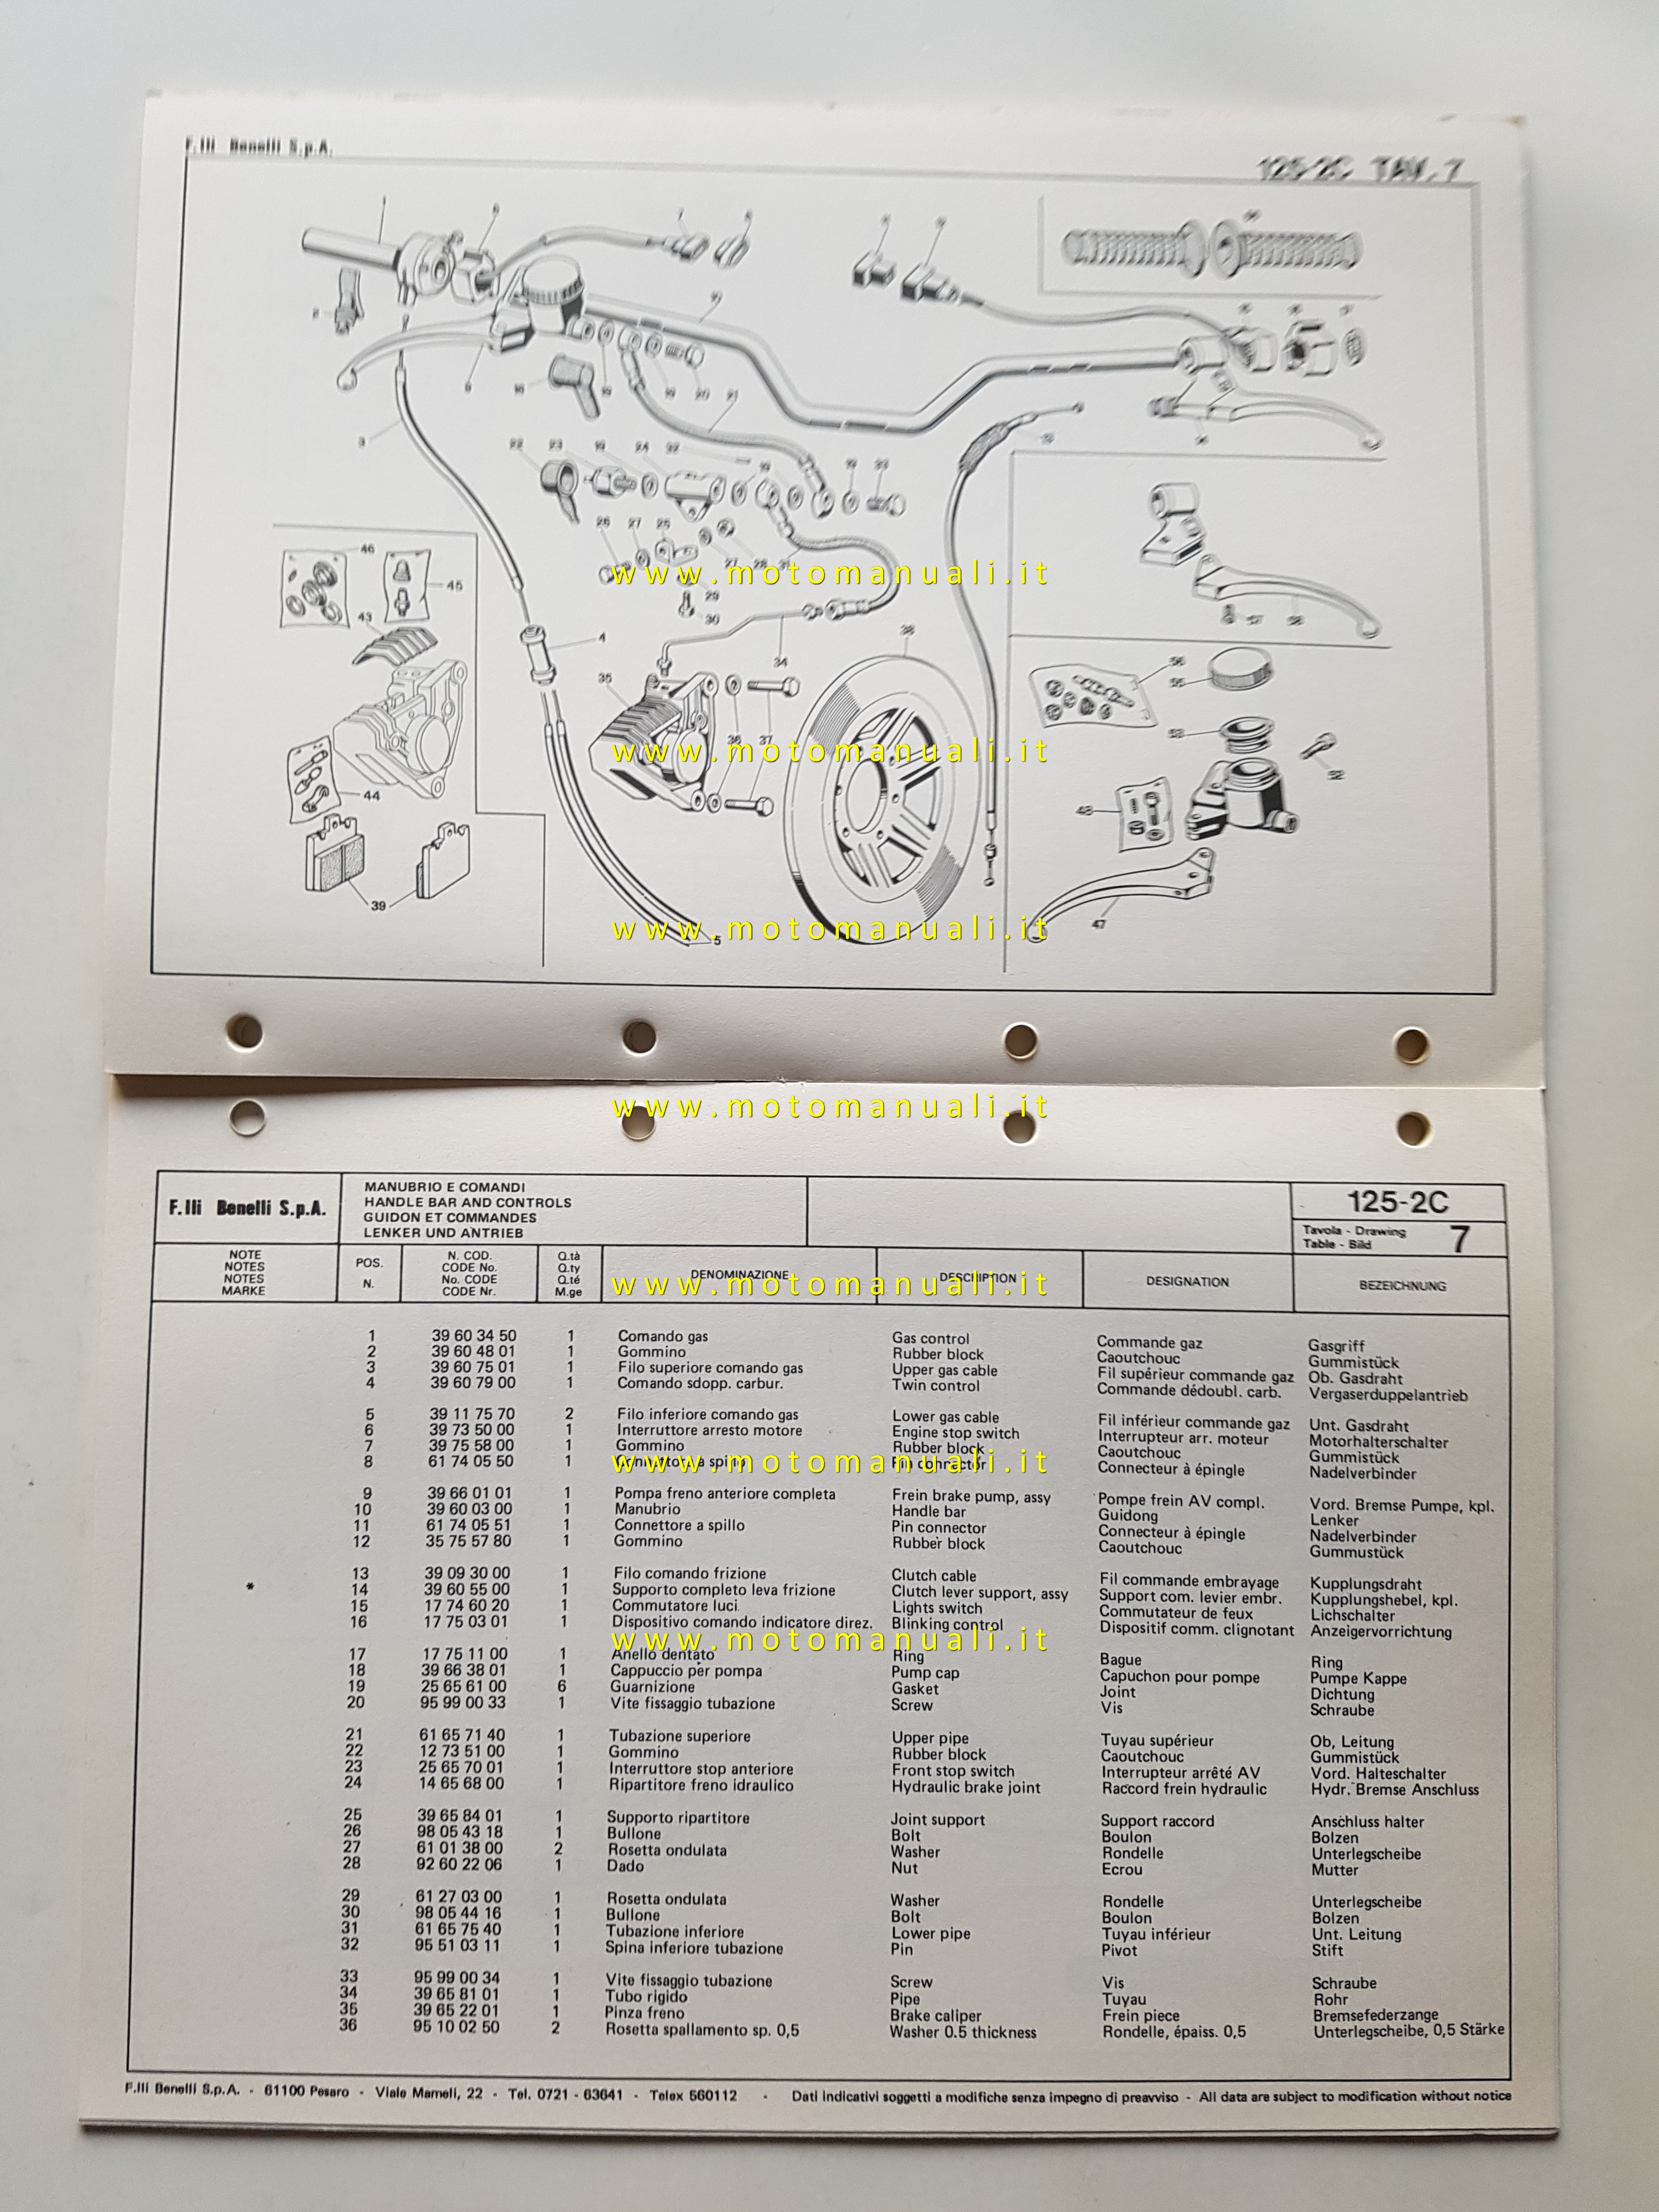 F.lli Benelli S.p.A.
125-2C TAV. 7
www.motomanuali.it
www.motomanuali.it
www.motomanuali.it
www.motomanuali.it
F.lli Benelli S.p.A.
MANUBRIO E COMANDI
HANDLE BAR AND CONTROLS
GUIDON ET COMMANDES
LENKER UND ANTRIEB
125-2C
Tavola - Drawing
Table - Bild
7
NOTE
NOTES
NOTES
MARKE
POS.
N.
N. COD.
CODE No.
No. CODE
CODE Nr.
Q.tà
Q.ty
Q.té
M.ge
DENOMINAZIONE
DESCRIPTION
DESIGNATION
BEZEICHNUNG
www.motomanuali.it
1 39 60 34 50 1 Comando gas Gas control Commande gaz Gasgriff
2 39 60 48 01 1 Gommino Rubber block Caoutchouc Gummistück
3 39 60 75 01 1 Filo superiore comando gas Upper gas cable Fil supérieur commande gaz Ob. Gasdraht
4 39 60 79 00 1 Comando sdopp. carbur. Twin control Commande dédoubl. carb. Vergaserduppelantrieb
5 39 11 75 70 2 Filo inferiore comando gas Lower gas cable Fil inférieur commande gaz Unt. Gasdraht
6 39 73 50 00 1 Interruttore arresto motore Engine stop switch Interrupteur arr. moteur Motorhalterschalter
7 39 75 58 00 1 Gommino Rubber block Caoutchouc Gummistück
8 61 74 05 50 1 Connettore a spillo Pin connector Connecteur à épingle Nadelverbinder
www.motomanuali.it
9 39 66 01 01 1 Pompa freno anteriore completa Frein brake pump, assy Pompe frein AV compl. Vord. Bremse Pumpe, kpl.
10 39 60 03 00 1 Manubrio Handle bar Guidong Lenker
11 61 74 05 51 1 Connettore a spillo Pin connector Connecteur à épingle Nadelverbinder
12 35 75 57 80 1 Gommino Rubber block Caoutchouc Gummustück
13 39 09 30 00 1 Filo comando frizione Clutch cable Fil commande embrayage Kupplungsdraht
* 14 39 60 55 00 1 Supporto completo leva frizione Clutch lever support, assy Support com. levier embr. Kupplungshebel, kpl.
15 17 74 60 20 1 Commutatore luci Lights switch Commutateur de feux Lichschalter
16 17 75 03 01 1 Dispositivo comando indicatore direz. Blinking control Dispositif comm. clignotant Anzeigervorrichtung
www.motomanuali.it
17 17 75 11 00 1 Anello dentato Ring Bague Ring
18 39 66 38 01 1 Cappuccio per pompa Pump cap Capuchon pour pompe Pumpe Kappe
19 25 65 61 00 6 Guarnizione Gasket Joint Dichtung
20 95 99 00 33 1 Vite fissaggio tubazione Screw Vis Schraube
21 61 65 71 40 1 Tubazione superiore Upper pipe Tuyau supérieur Ob, Leitung
22 12 73 51 00 1 Gommino Rubber block Caoutchouc Gummistück
23 25 65 70 01 1 Interruttore stop anteriore Front stop switch Interrupteur arrêté AV Vord. Halteschalter
24 14 65 68 00 1 Ripartitore freno idraulico Hydraulic brake joint Raccord frein hydraulic Hydr. Bremse Anschluss
25 39 65 84 01 1 Supporto ripartitore Joint support Support raccord Anschluss halter
26 98 05 43 18 1 Bullone Bolt Boulon Bolzen
27 61 01 38 00 2 Rosetta ondulata Washer Rondelle Unterlegscheibe
28 92 60 22 06 1 Dado Nut Ecrou Mutter
29 61 27 03 00 1 Rosetta ondulata Washer Rondelle Unterlegscheibe
30 98 05 44 16 1 Bullone Bolt Boulon Bolzen
31 61 65 75 40 1 Tubazione inferiore Lower pipe Tuyau inférieur Unt. Leitung
32 95 51 03 11 1 Spina inferiore tubazione Pin Pivot Stift
33 95 99 00 34 1 Vite fissaggio tubazione Screw Vis Schraube
34 39 65 81 01 1 Tubo rigido Pipe Tuyau Rohr
35 39 65 22 01 1 Pinza freno Brake caliper Frein piece Bremsefederzange
36 95 10 02 50 2 Rosetta spallamento sp. 0,5 Washer 0.5 thickness Rondelle, épaiss. 0,5 Unterlegscheibe, 0,5 Stärke
F.lli Benelli S.p.A. - 61100 Pesaro - Viale Mameli, 22 - Tel. 0721 - 63641 - Telex 560112 - Dati indicativi soggetti a modifiche senza impegno di preavviso - All data are subject to modification without notice